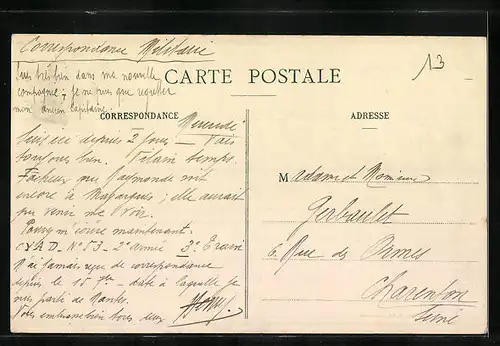 Correspondance Militaire
13
Suis très bien dans ma nouvelle
compagnie; je ne puis que regretter
mon ancien Capitaine.
CARTE POSTALE
CORRESPONDANCE
ADRESSE
Suis ici depuis 2 jours — Vais
toujours bien. Vilain temps.
Fâcheux que Raymonde soit
encore à ; elle aurait
pu venir me voir.
Pour m'écrire maintenant.
D. N° 53 - 2e armée
N'ai jamais reçu de correspondance
depuis le 15 — date à laquelle je
suis parti de Nantes.
Vous embrasse bien tous deux
Madame et Monsieur
Gerbault
6. Rue des Ormes
Charenton
Seine